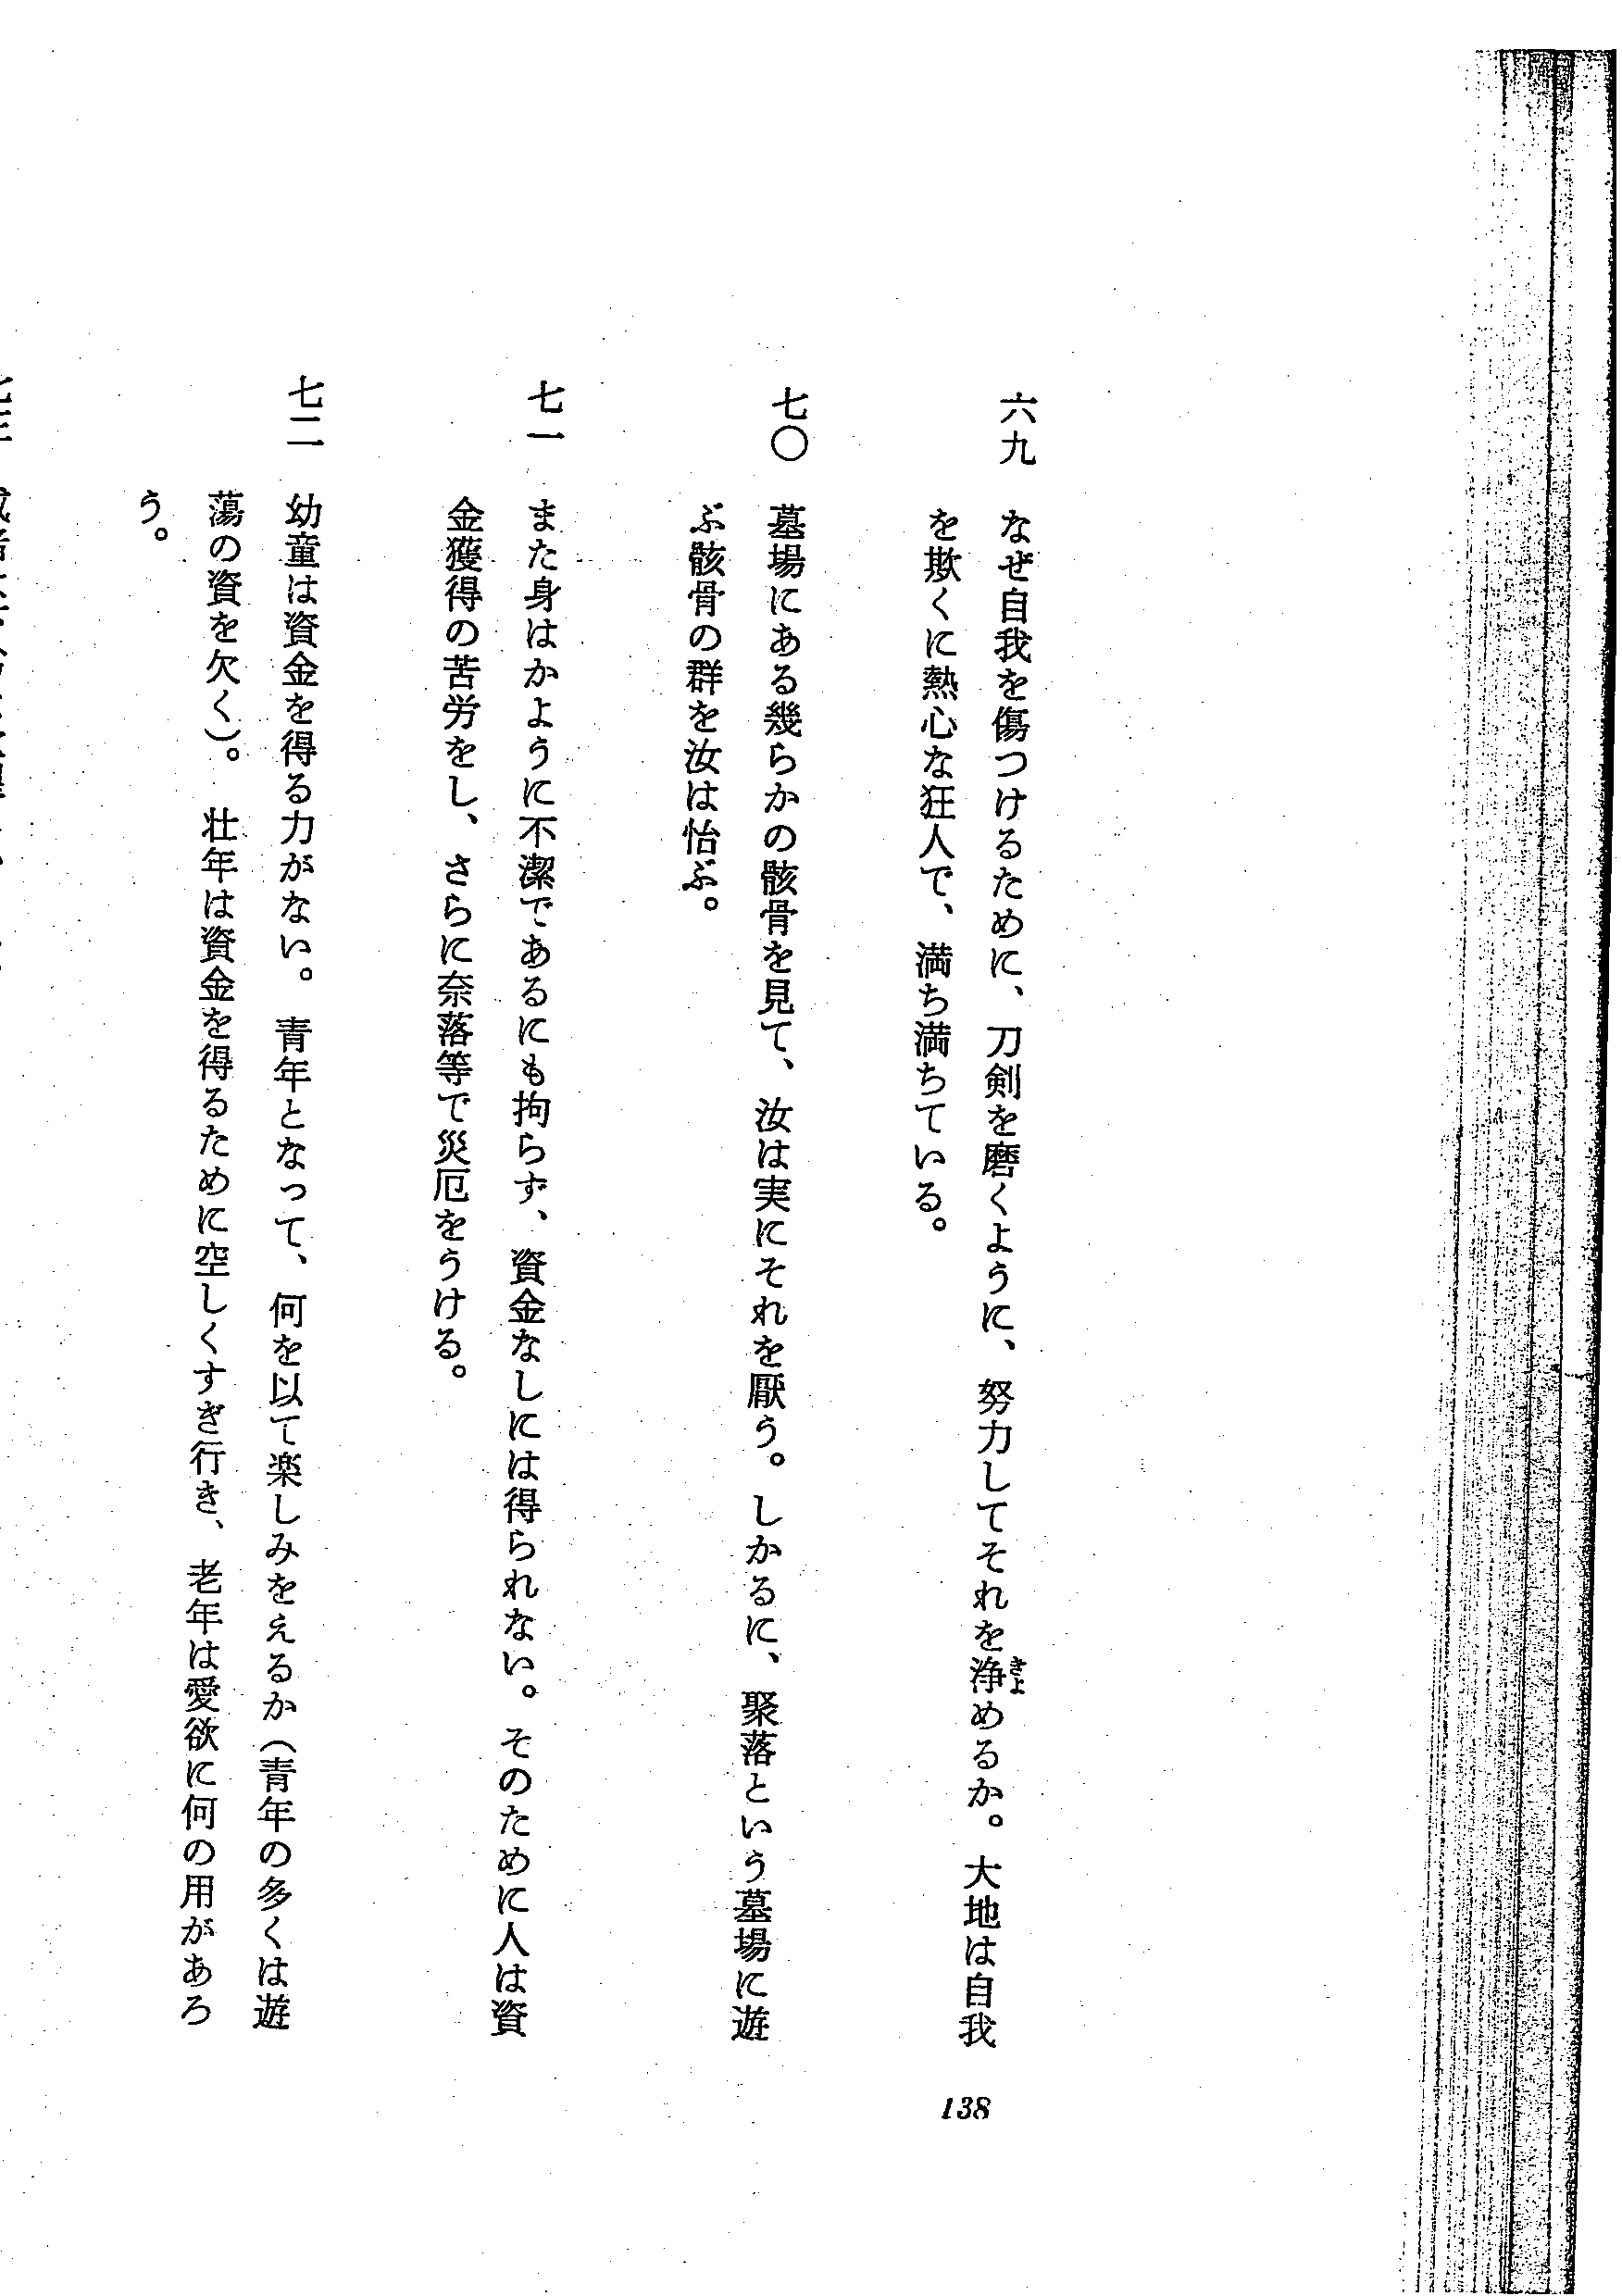 六九　なぜ自我を傷つけるために、刀剣を磨くように、努力してそれを浄めるか。大地は自我
きよ
を欺くに熱心な狂人で、満ち満ちている。
七〇　墓場にある幾らかの骸骨を見て、汝は実にそれを厭う。しかるに、聚落という墓場に遊
ぶ骸骨の群を汝は怡ぶ。
七一　また身はかように不潔であるにも拘らず、資金なしには得られない。そのために人は資
金獲得の苦労をし、さらに奈落等で災厄をうける。
七二　幼童は資金を得る力がない。青年となって、何を以て楽しみをえるか（青年の多くは遊
蕩の資を欠く）。壮年は資金を得るために空しくすぎ行き、老年は愛欲に何の用があろ
う。
138